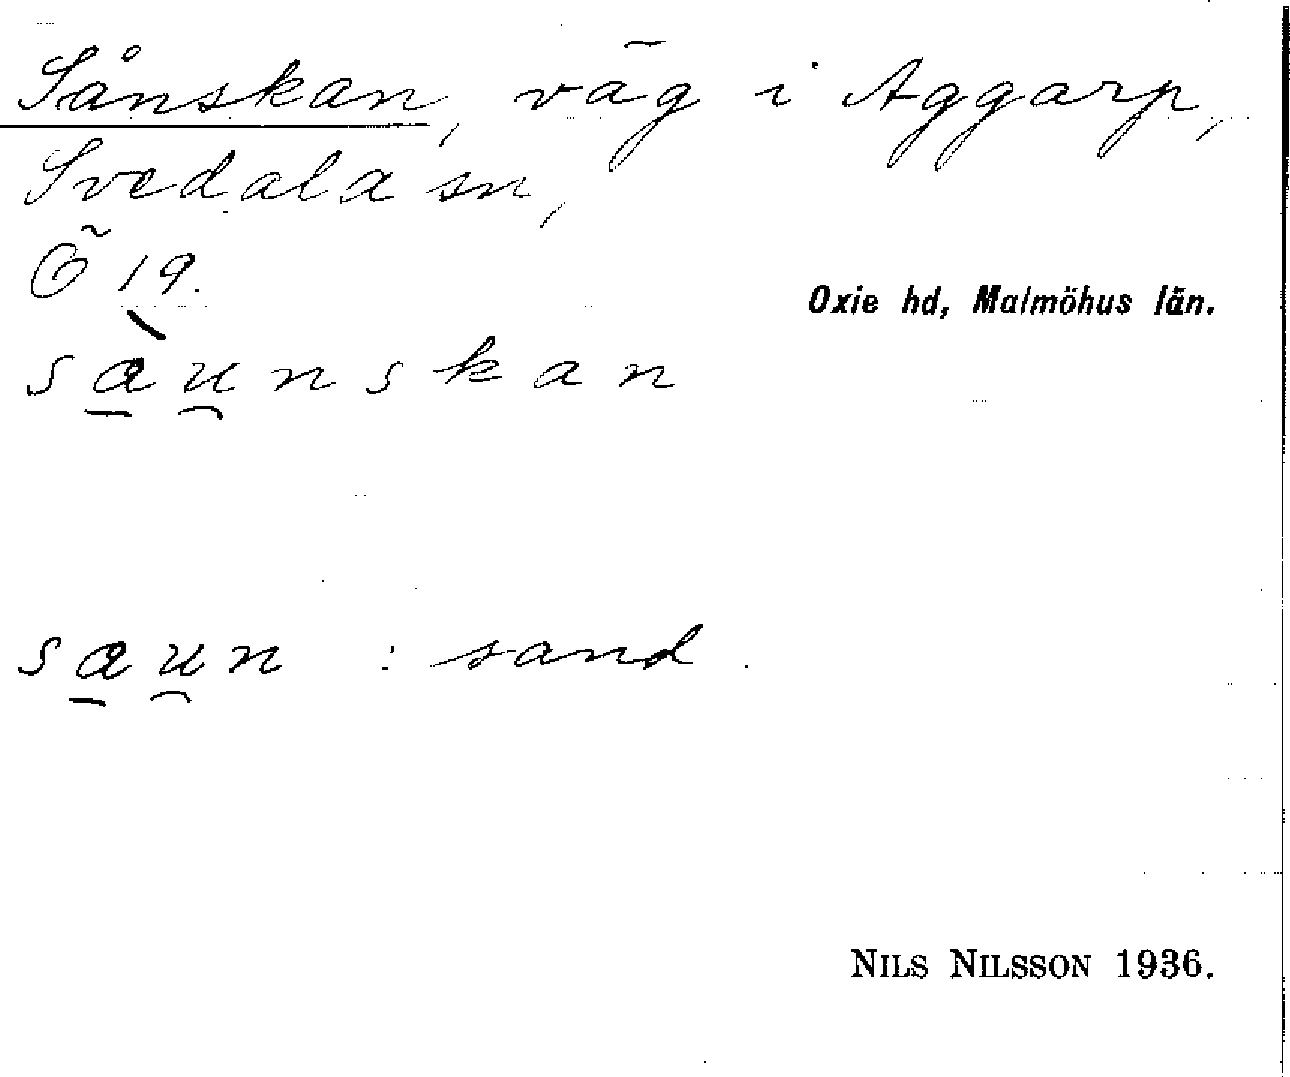 Sånskan, väg i Aggarp,
Svedala sn,
Ö 19.
Oxie hd, Malmöhus län.
sæ̠̀u̯nskan
sæ̠u̯n : sand.
NILS NILSSON 1936.